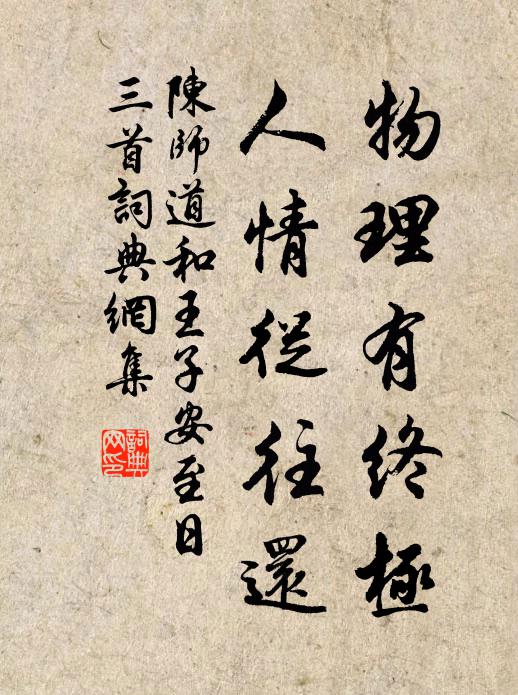 物理有終極
人情從往還
陳師道和王子安至日
三首詞典網集
詞典
网印